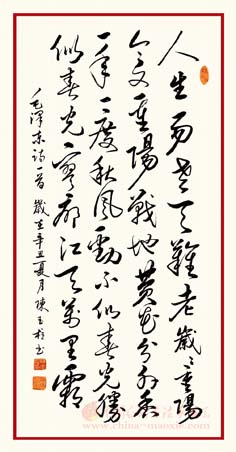 人生易老天難老歲〻重陽
今又重陽戰地黃花分外香
一年一度秋風勁不似春光勝
似春光寥廓江天萬里霜
毛澤東詩一首 歲在辛丑夏月陳玉書